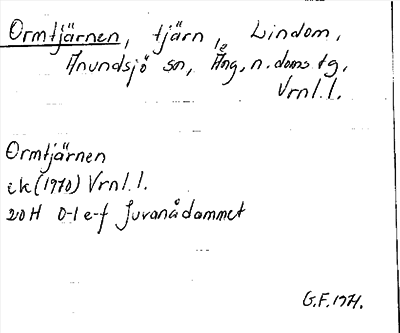 Ormtjärnen, tjärn, Lindom,
Ånundsjö sn, Ång, n. doms tg,
Vrnl. l.
Ormtjärnen
ek (1970) Vrnl. l.
20H 0-1 e-f Juvanådammet
G.F. 1971.